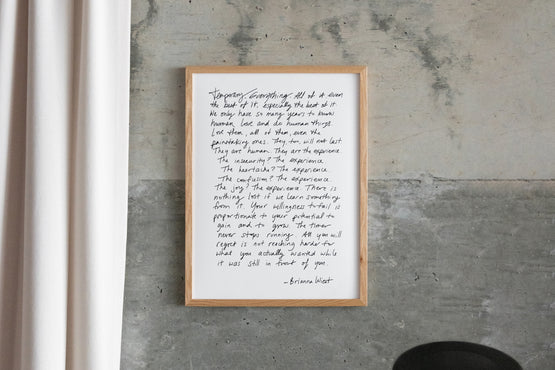 Temporary. Everything. All of it even
the best of it. Especially the best of it.
We only have so many years to know
human love and do human things.
Love them, all of them, even the
painstaking ones. They, too, will not last.
They are human. They are the experience.
The insecurity? The experience.
The heartache? The experience.
The confusion? The experience.
The joy? The experience. There is
nothing lost if we learn something
from it. Your willingness to fail is
proportionate to your potential to
gain and to grow. The timer
never stops running. All you will
regret is not reaching harder for
what you actually wanted while
it was still in front of you.
-Brianna Wiest